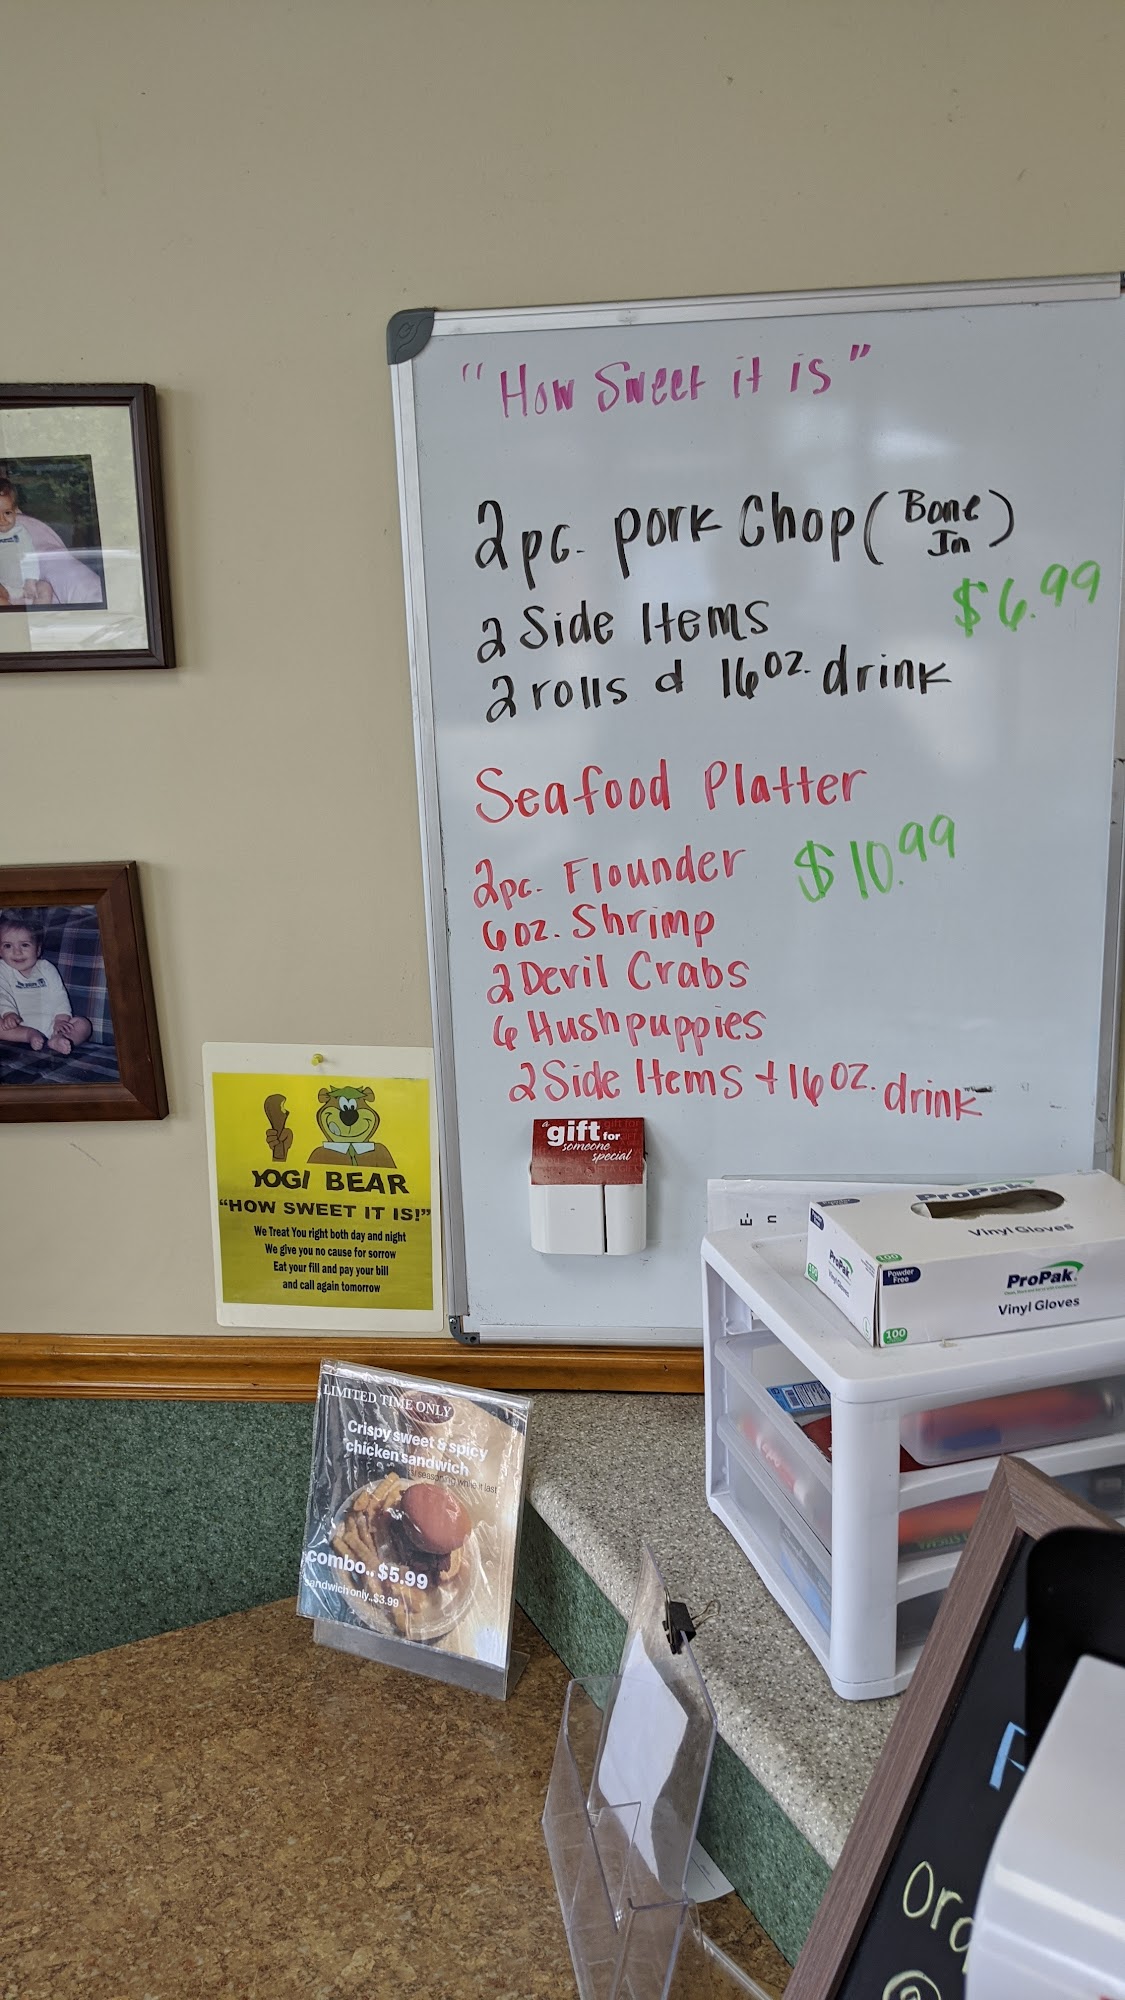 "How Sweet it is"
2pc. pork Chop (Bone In)
$6.99
2 Side Items
2 rolls & 16oz. drink
Seafood Platter
2pc. Flounder $10.99
6oz. Shrimp
2 Devil Crabs
6 Hushpuppies
2 Side Items + 16oz. drink
a gift for
someone
special
YOGI BEAR
"HOW SWEET IT IS!"
We Treat You right both day and night
We give you no cause for sorrow
Eat your fill and pay your bill
and call again tomorrow
E-
n
ProPak
Vinyl Gloves
ProPak
Vinyl Gloves
100
Powder
Free
ProPak
Vinyl Gloves
100
LIMITED TIME ONLY
Crispy sweet & spicy
chicken sandwich
seasoning while it last
combo.. $5.99
sandwich only..$3.99